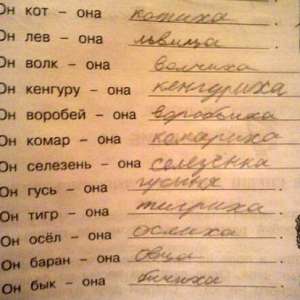 Он кот – она котиха.
Он лев – она львица.
Он волк – она волчиха.
Он кенгуру – она кенгуриха.
Он воробей – она воробьиха.
Он комар – она комариха.
Он селезень – она селезёнка.
Он гусь – она гусыня.
Он тигр – она тигриха.
Он осёл – она ослиха.
Он баран – она овца.
Он бык – она бычиха.